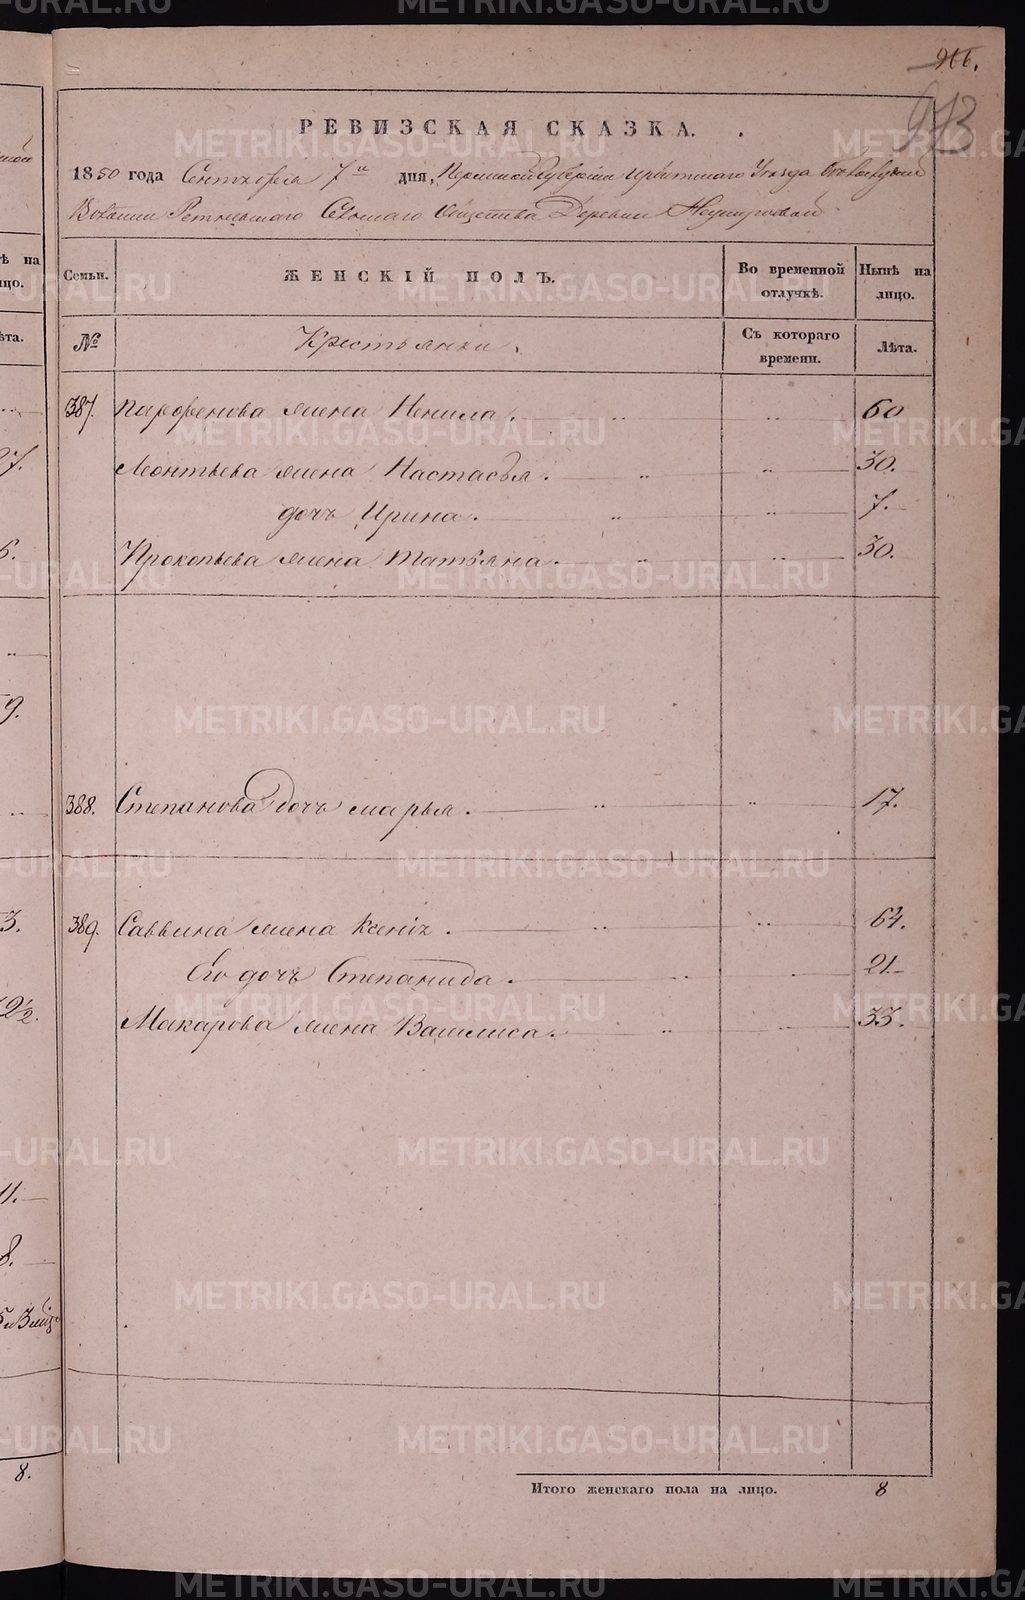 916.
943
РЕВИЗСКАЯ СКАЗКА.
1850 года Сентября 7го дня, Пермской Губерніи Ирбитскаго Уѣзда
Волости Сельскаго Общества Деревни
Семьи. ЖЕНСКІЙ ПОЛЪ. Во временной отлучкѣ. Нынѣ на лицо.
№ Крестьянки. Съ котораго времени. Лѣта.
387. Парфенова жена Ненила. 60
Леонтьева жена Настасья. 30.
дочь Ирина. 7.
Прокопьева жена Татьяна. 30.
388. Степанова дочь Марья. 17.
389. Саввина жена Ксенія. 64.
Его дочь Степанида. 21
Макарова жена Василиса. 33.
Итого женскаго пола на лицо. 8
ѣ на
цо.
ѣта.
27.
9.
3.
11.
8.
8.
METRIKI.GASO-URAL.RU